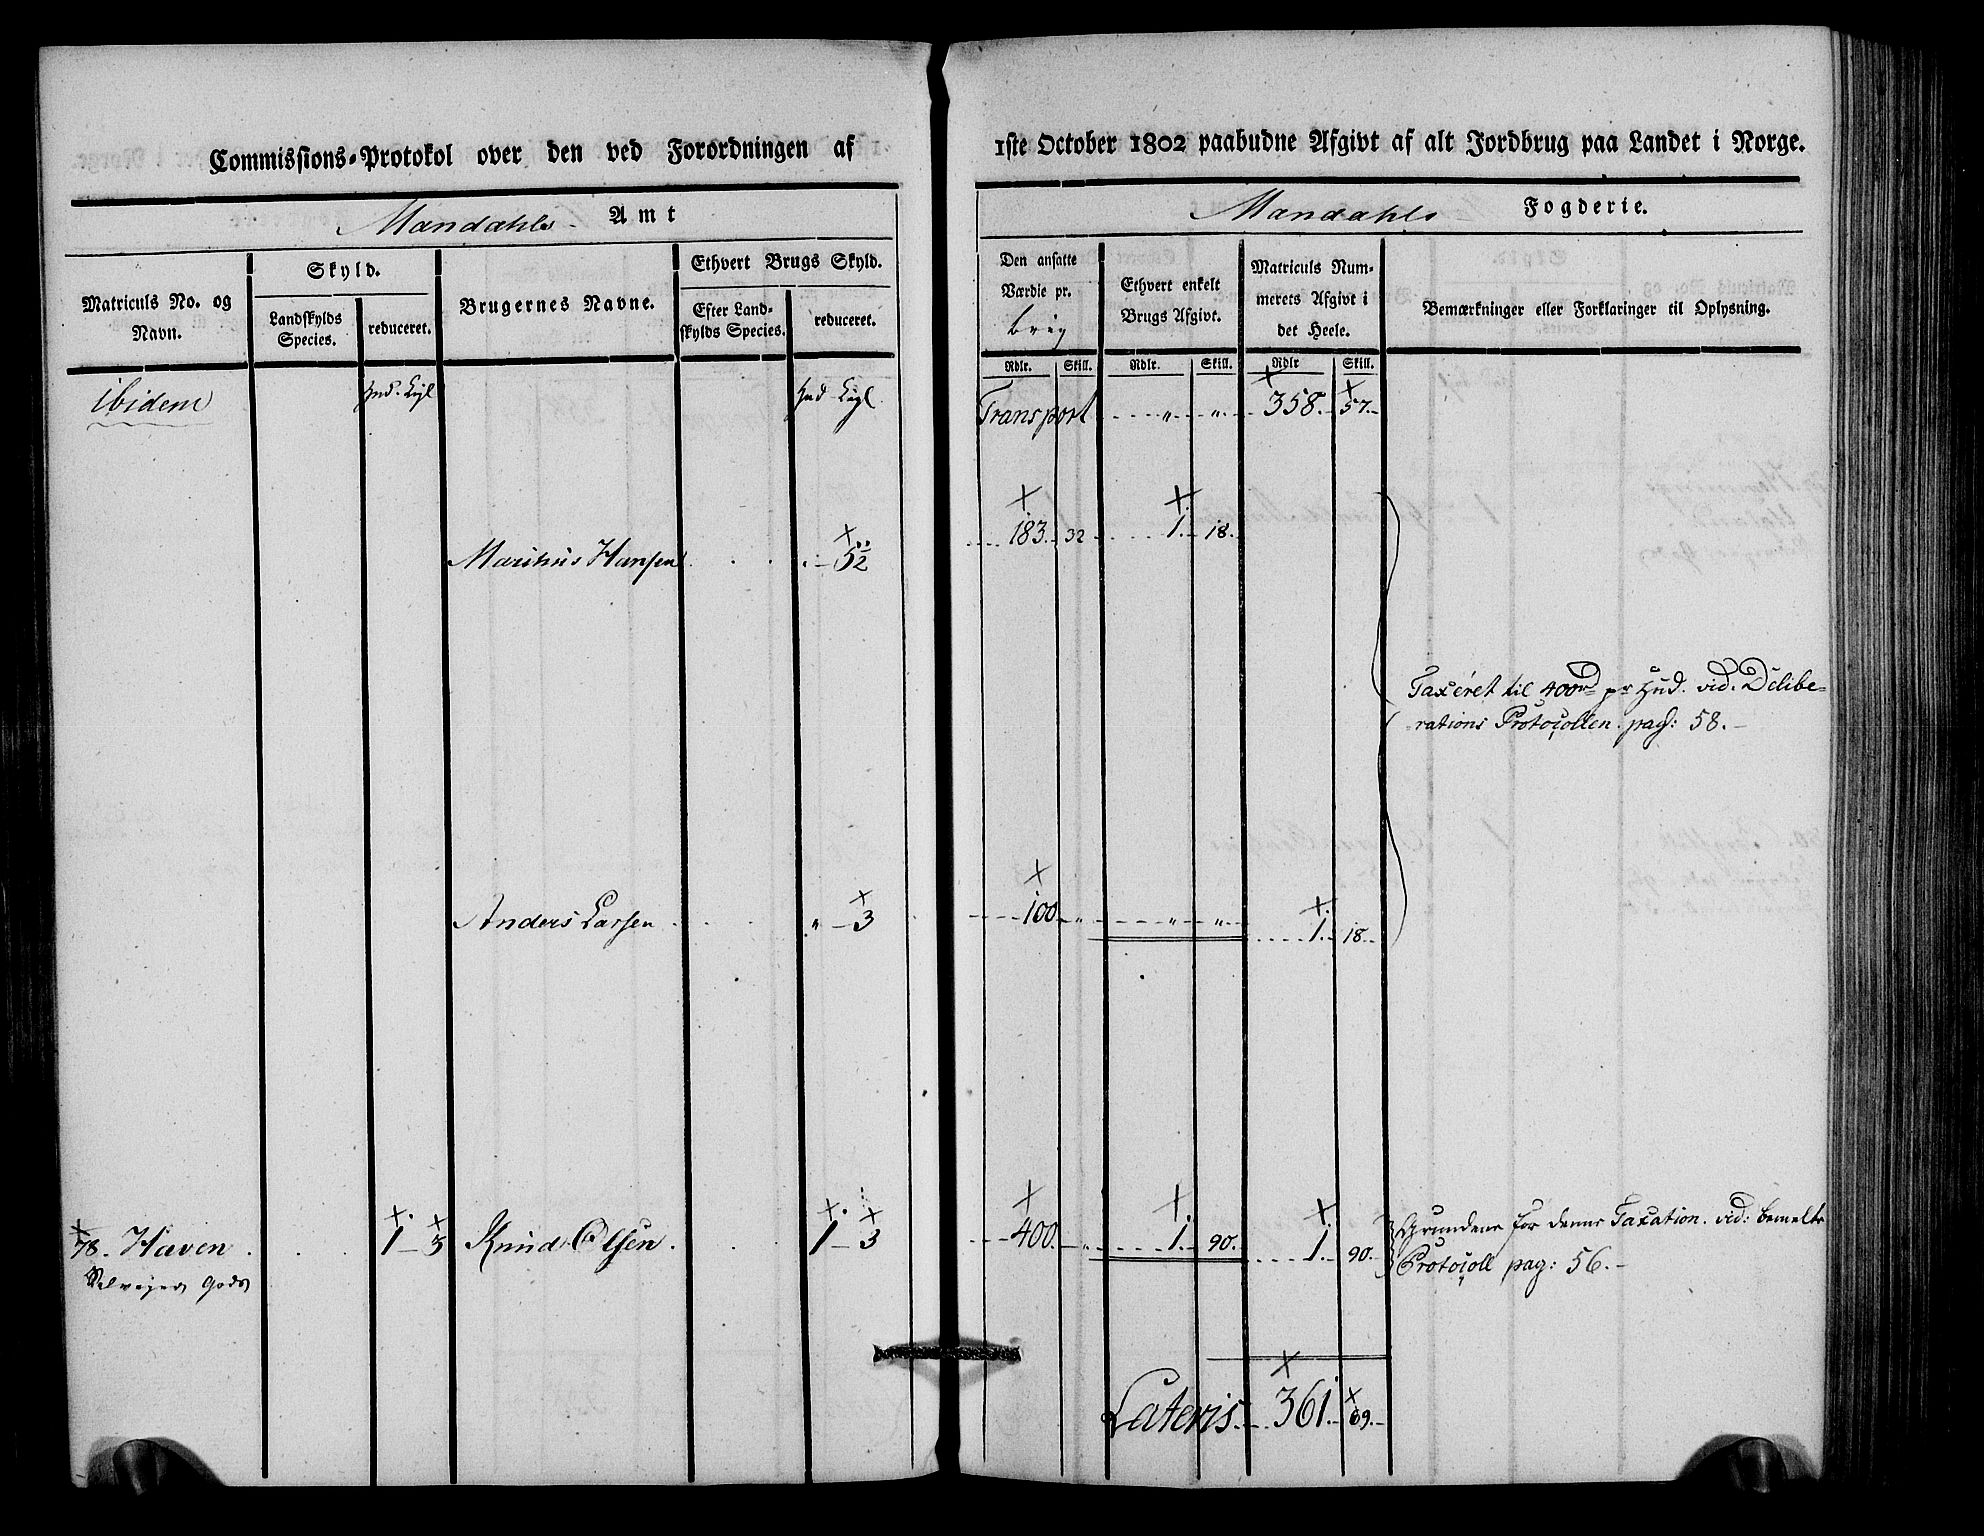 Commissions-Protokol over den ved Forordningen af 1ste October 1802 paabudne Afgivt af alt Jordbrug paa Landet i Norge.
Mandahls Amt
Mandahls Fogderie.
Matriculs No. og Navn.
Skyld.
Landskylds Species.
reduceret.
Brugernes Navne.
Ethvert Brugs Skyld.
Efter Land-
skylds Species.
reduceret.
Den ansatte
Værdie pr.
Rdlr. Skill.
Ethvert enkelt
Brugs Afgivt.
Rdlr. Skill.
Matriculs Num-
merets Afgivt i
det Heele.
Rdlr Skill.
Bemærkninger eller Forklaringer til Oplysning.
ibidem
Transport " " 358. 57.
Marthus Hansen 5½ 183. 32 1. 18.
Taxeret til 400rd pr Hud. vid. Delibe-
rations Protocollen. pag: 58.
Anders Larsen " 3 100 " " " 1. 18.
78. Haven 1 3 Knud Olsen 1 3 400. " 1. 90. 1. 90.
Selvejer Gods
Grundene for denne Taxation. vid: bemelte
Protocoll pag: 56.
Lateris 361. 69.